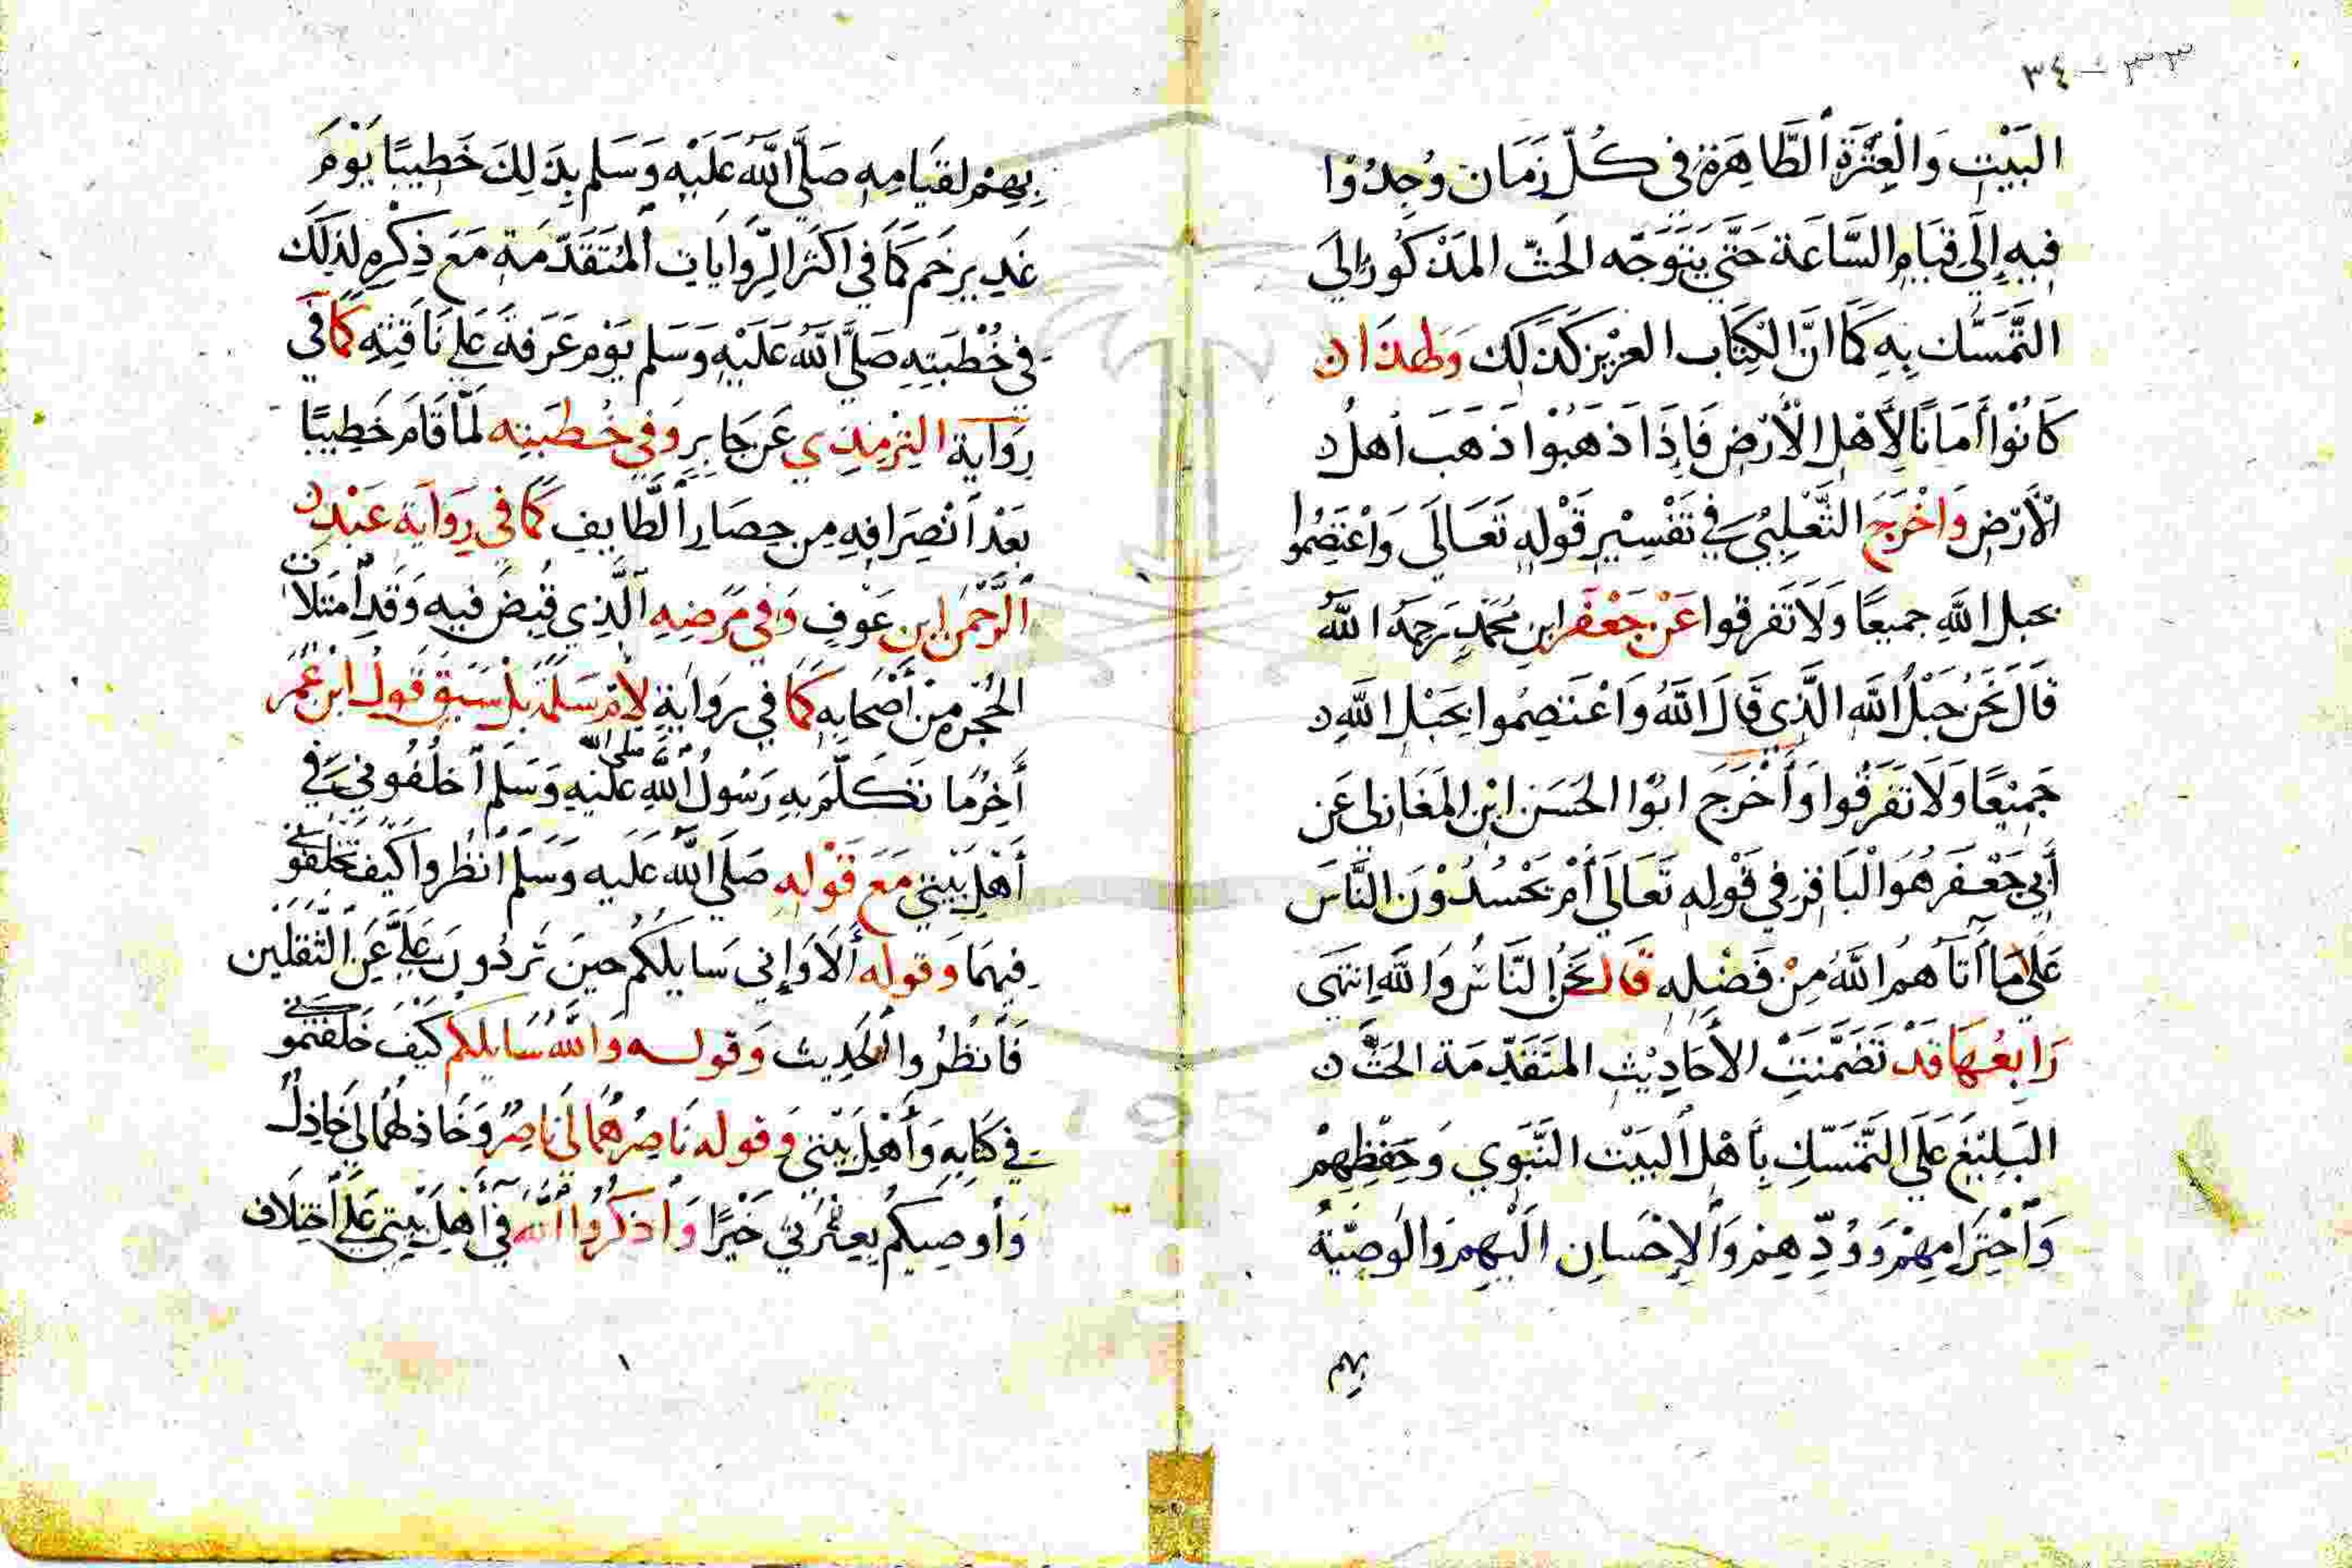 ٣٣ - ٣٤
البَيْتِ وَالْعِتْرَةِ الطَّاهِرَةِ فِى كُلِّ زَمَانٍ وُجِدُوْا
فِيهِ إِلَى قِيَامِ السَّاعَة حَتَّى يَتَوَجَّه الحَثّ المَذْكُورُ إِلَى
التَّمَسُّك بِهِ كَمَا انَّ الْكِتَاب العزيز كَذَلِك وَلِهذَا
كَانُوْا أَمَانًا لِأَهْلِ الْأَرْضِ فَإِذَا ذَهَبُوْا ذَهَبَ أهلُ
الْأَرْضِ وَاخْرَجَ الثَّعْلِبُى فِي تَفْسِيْرِ قَوْلِهِ تَعَالَى وَاعْتَصِمُوا
بحبل اللهِ جميعًا وَلَا تَفَرقوا عَنْ جَعْفَر ابن مُحَمَّدٍ رَحِمَهُ اللهُ
قَالَ نَحْنُ حَبْلُ اللهِ الَّذِى قَالَ اللهُ وَاعْتَصِمُوا بِحَبْلِ اللهِ
جَمِيْعًا وَلَا تَفَرَّقُوا وَأَخْرَجَ ابُوْا الحَسَن ابْن المَغَازِلى عَن
أَبِي جَعْفَر هُوَ الْبَاقِر فِي قَوْلِهِ تَعَالَى أَمْ يَحْسُدُوْنَ النَّاسَ
عَلَى مَا أَتَاهُمُ اللهُ مِنْ فَضْلِهِ قَالَ نَحْنُ النَّاسُ وَاللهِ انتهى
رَابِعُهَا قَدْ تَضَمَّنَتْ الأَحَادِيْثِ المتَقَدِّمَة الحَثَّ
البَلِيْغَ عَلَى التَّمَسّكِ بِأَهْلِ البَيْت النَّبَوِي وَحِفْظِهِمْ
وَاحْتِرَامِهِمْ وَوُدِّهِمْ وَالإِحْسَانِ الَيْهِمْ وَالوَصِيَّةُ
بهم
بِهِمْ لقيَامِهِ صَلَّى اللهُ عَلَيْهِ وَسَلم بِذَلِكَ خَطِيبًا يَوْمَ
غَدِيرِ خَم كَمَا فِي اكَثَر الرِّوَايَاتِ المُتَقَدّمَة مَعَ ذِكْرِهِ لِذَلِكَ
فِى خُطْبَتِهِ صَلَّى اللهُ عَلَيْهِ وَسَلم يَوْم عَرَفَةَ عَلَى نَاقَتِهِ كَمَا فِي
رِوَايَة التِرْمِذِي عَن جَابِرٍ وَفِي خُطْبَتِه لَمَّا قَامَ خَطِيبًا
بَعْدَ انْصِرَافِهِ مِن حِصَارِ الطَّايِفِ كَمَا فِي رِوَايَة عَبْدِ
الرَّحْمَن ابن عَوْفٍ وَفِي مَرَضِهِ الَّذِي قُبِضَ فيهِ وَقَدِ امْتَلأت
الحُجْرَه مِنْ أَصْحَابِهِ كَمَا فِي رِوَايَةٍ لِأُمّ سَلمَةَ بَلْ سَبَقَ قَولُ ابْن عُمَرَ
أَخِرُ مَا تَكَلَّمَ بِهِ رَسُولُ اللهِ صلى الله عَلَيْهِ وَسَلم اخلُفُونِي فِي
أَهْلِ بَيْتِي مَعَ قَوْلِهِ صَلَى اللهُ عَلَيه وَسَلم انْظُروا كَيْفَ تَخْلُفُونِي
فِيهمَا وَقوله أَلَا وَإِنِي سَايلكُم حينَ تَرِدُونَ عَلَيَّ عَنِ الثَّقَلَين
فَانْظُرُوا الحَدِيث وَقوله وَاللهُ سَايلكم كَيْفَ خَلَفتمُونِي
فِي كتَابِهِ وَأَهْلِ بَيْتِي وَقوله نَاصِرُهُمَا لِي نَاصِرٌ وَخَاذِلهُمَا لِي خَاذِلٌ
وَأُوصِيكُم بِعِتْرَتي خَيْرًا وَاذكُرُوا اللهَ فِي أَهْلِ بَيْتِي عَلَى اخْتِلَافِ